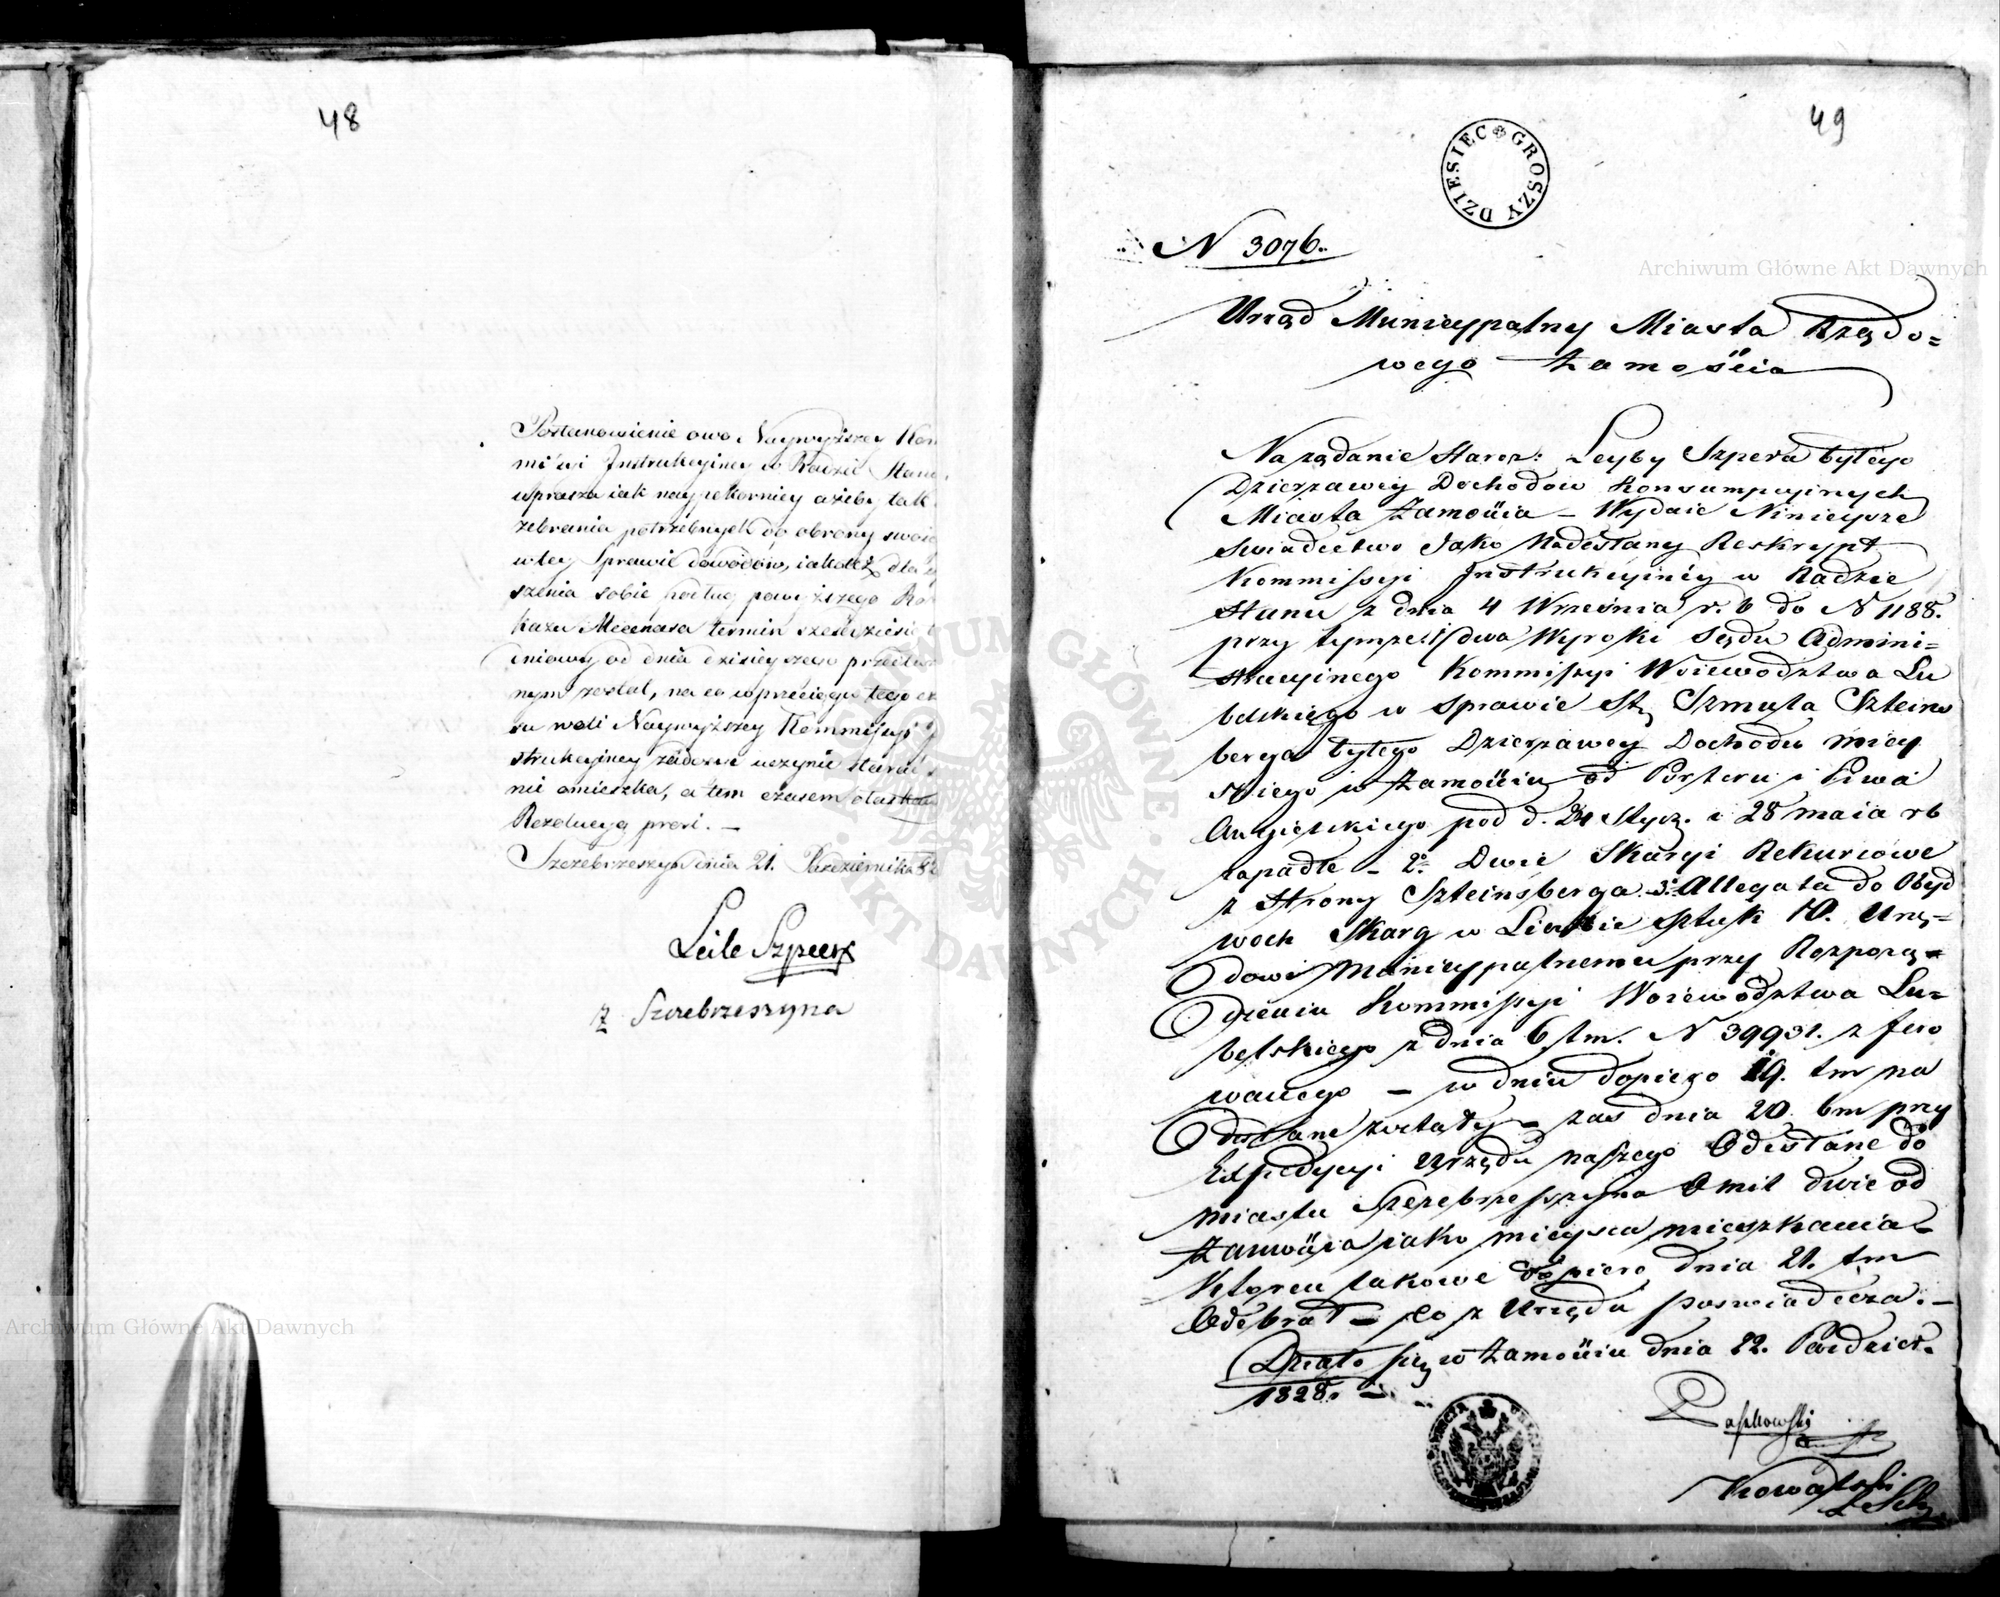 48
Postanowienie owo Naywyższey Kom
mi'ssi Instrukcyiney w Radzie Stanu
uprasza iak naypokorniey ażeby tak
zebrania potrzebnych do obrony swoiey
w tey Sprawie dowodów, iakoteż dla
szenia sobie podług powyższego
kazu Mecenasa termin sześdziesiąt
dniowy od dnia dzisieyszego
nym został, na co w przeciągu tego cza
su woli Naywyższey Kommissyi In
strukcyiney zadosyć uczynić starać
nie omieszka, a tem czasem o łaskawą
Rezolucyą prosi. —
Szczebrzeszyn dnia 21. Pazdziernika 82
Leib Szpeer
z Szczebrzeszyna
49
DZIESIEC GROSZY
N 3076.
Urząd Municypalny Miasta Rządo=
wego Zamościa
Na żądanie Staroz: Leyby Szpera byłego
Dzierżawcy Dochodow Konsumpcyinych
Miasta Zamościa – Wydaie Ninieysze
Swiadectwo Jako Nadesłany Reskrypt
Kommissyi Instrukcyiney w Radzie
Stanu z dnia 4 Września r. b do N 1188.
przy tymże dwa Wyroki Sądu Admini=
stracyinego Kommissyi Woiewodztwa Lu
belskiego w sprawie St. Szmula Szteins
berga byłego Dzierżawcy Dochodu miey
skiego w Zamościu od Porteru i Piwa
Angielskiego pod d. 24 Stycz. i 28 maia rb
zapadłe – 2° Dwie Skargi Rekursowe
z Strony Szteinsberga 3° Allegata do Obyd
woch Skarg w Liczbie sztuk 10. Urzę=
dowi Municypalnemu przy Rozporzą=
dzeniu Kommissyi Woiewodztwa Lu=
belskiego z dnia 6 tm. N 39931. z
wanego – w dniu dopiero 19. tm na
desłane zostały – zas dnia 20 bm przy
Expedycyi Urzędu naszego Odesłane do
miasta Szczebrzeszyna o mil dwie od
Zamościa iako mieysca mieszkania –
Którey takowe dopiero dnia 21. tm
Odebrał – co z Urzędu poswiadcza. –
Działo się w Zamościu dnia 22. Pazdzier.
1828. –
Paszkowski
Kowalski
Archiwum Główne Akt Dawnych
Archiwum Główne Akt Dawnych
ARCHIWUM GŁÓWNE AKT DAWNYCH